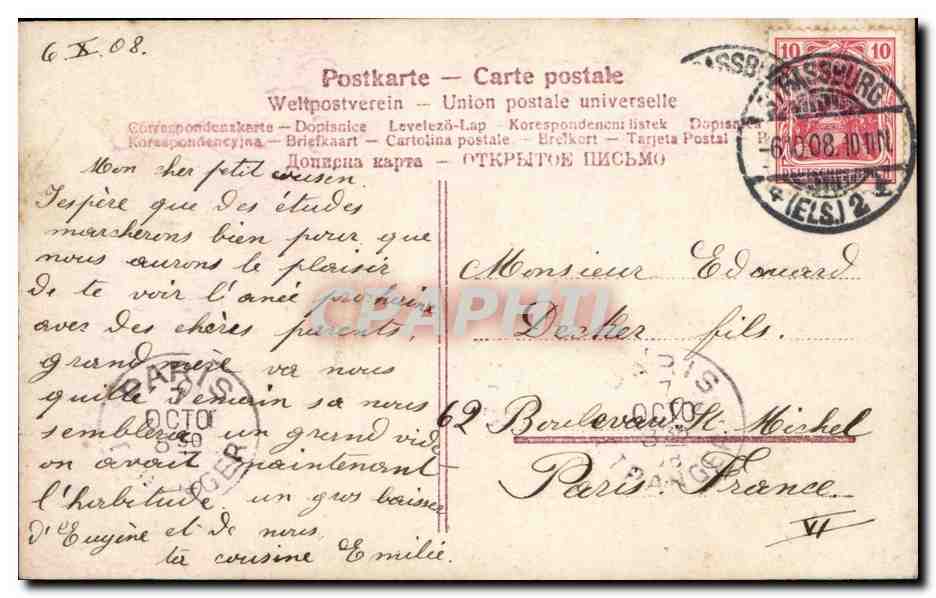 6 X 08.
Postkarte — Carte postale
Weltpostverein — Union postale universelle
Correspondenzkarte — Dopisnice Levelező-Lap — Korespondencni listek Dopisnica
Korespondencyjna — Briefkaart — Cartolina postale — Brefkort — Tarjeta Postal
Дописна карта — ОТКРЫТОЕ ПИСЬМО
10 10
STRASSBURG
6.10.08. 10-11N.
4 (ELS.) 2
Mon cher petit cousin.
J'espère que des études
marcherons bien pour que
nous aurons le plaisir
de te voir l'anée prochaine
avec des chères parents,
grand mère va nous
quitté demain sa nous
semblera un grand vide
on avait maintenant
l'harbitude un gros baiser
d'Eugène et de nous
ta cousine Emilie.
Monsieur Edouard
Decker fils.
62 Boulevard St. Michel
Paris. France.
VI
PARIS
OCTO
8 30
ETRANGER
PARIS
OCTO
ETRANGER
CPAPHIL